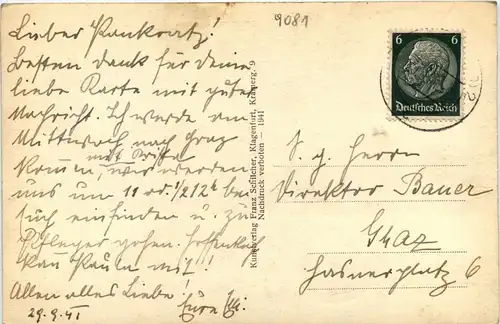 9081
Lieber Pankratz!
Besten Dank für Deine
liebe Karte mit guter
Nachricht. Ich werde am
Mittwoch nach Graz
mit
kommen, wir werden
uns um 11 od. 1/2 12h bei
Euch einfinden u. zu
Pfleger gehen. Hoffentlich
kann Paula mit!
Allen alles Liebe!
29.9.41 Eure
Kunstverlag Franz Schilcher, Klagenfurt, Kramerg. 9
Nachdruck verboten — 1941
6 6
Deutsches Reich
S. g. Herrn
Direktor Bauer
Graz
Hasnerplatz 6